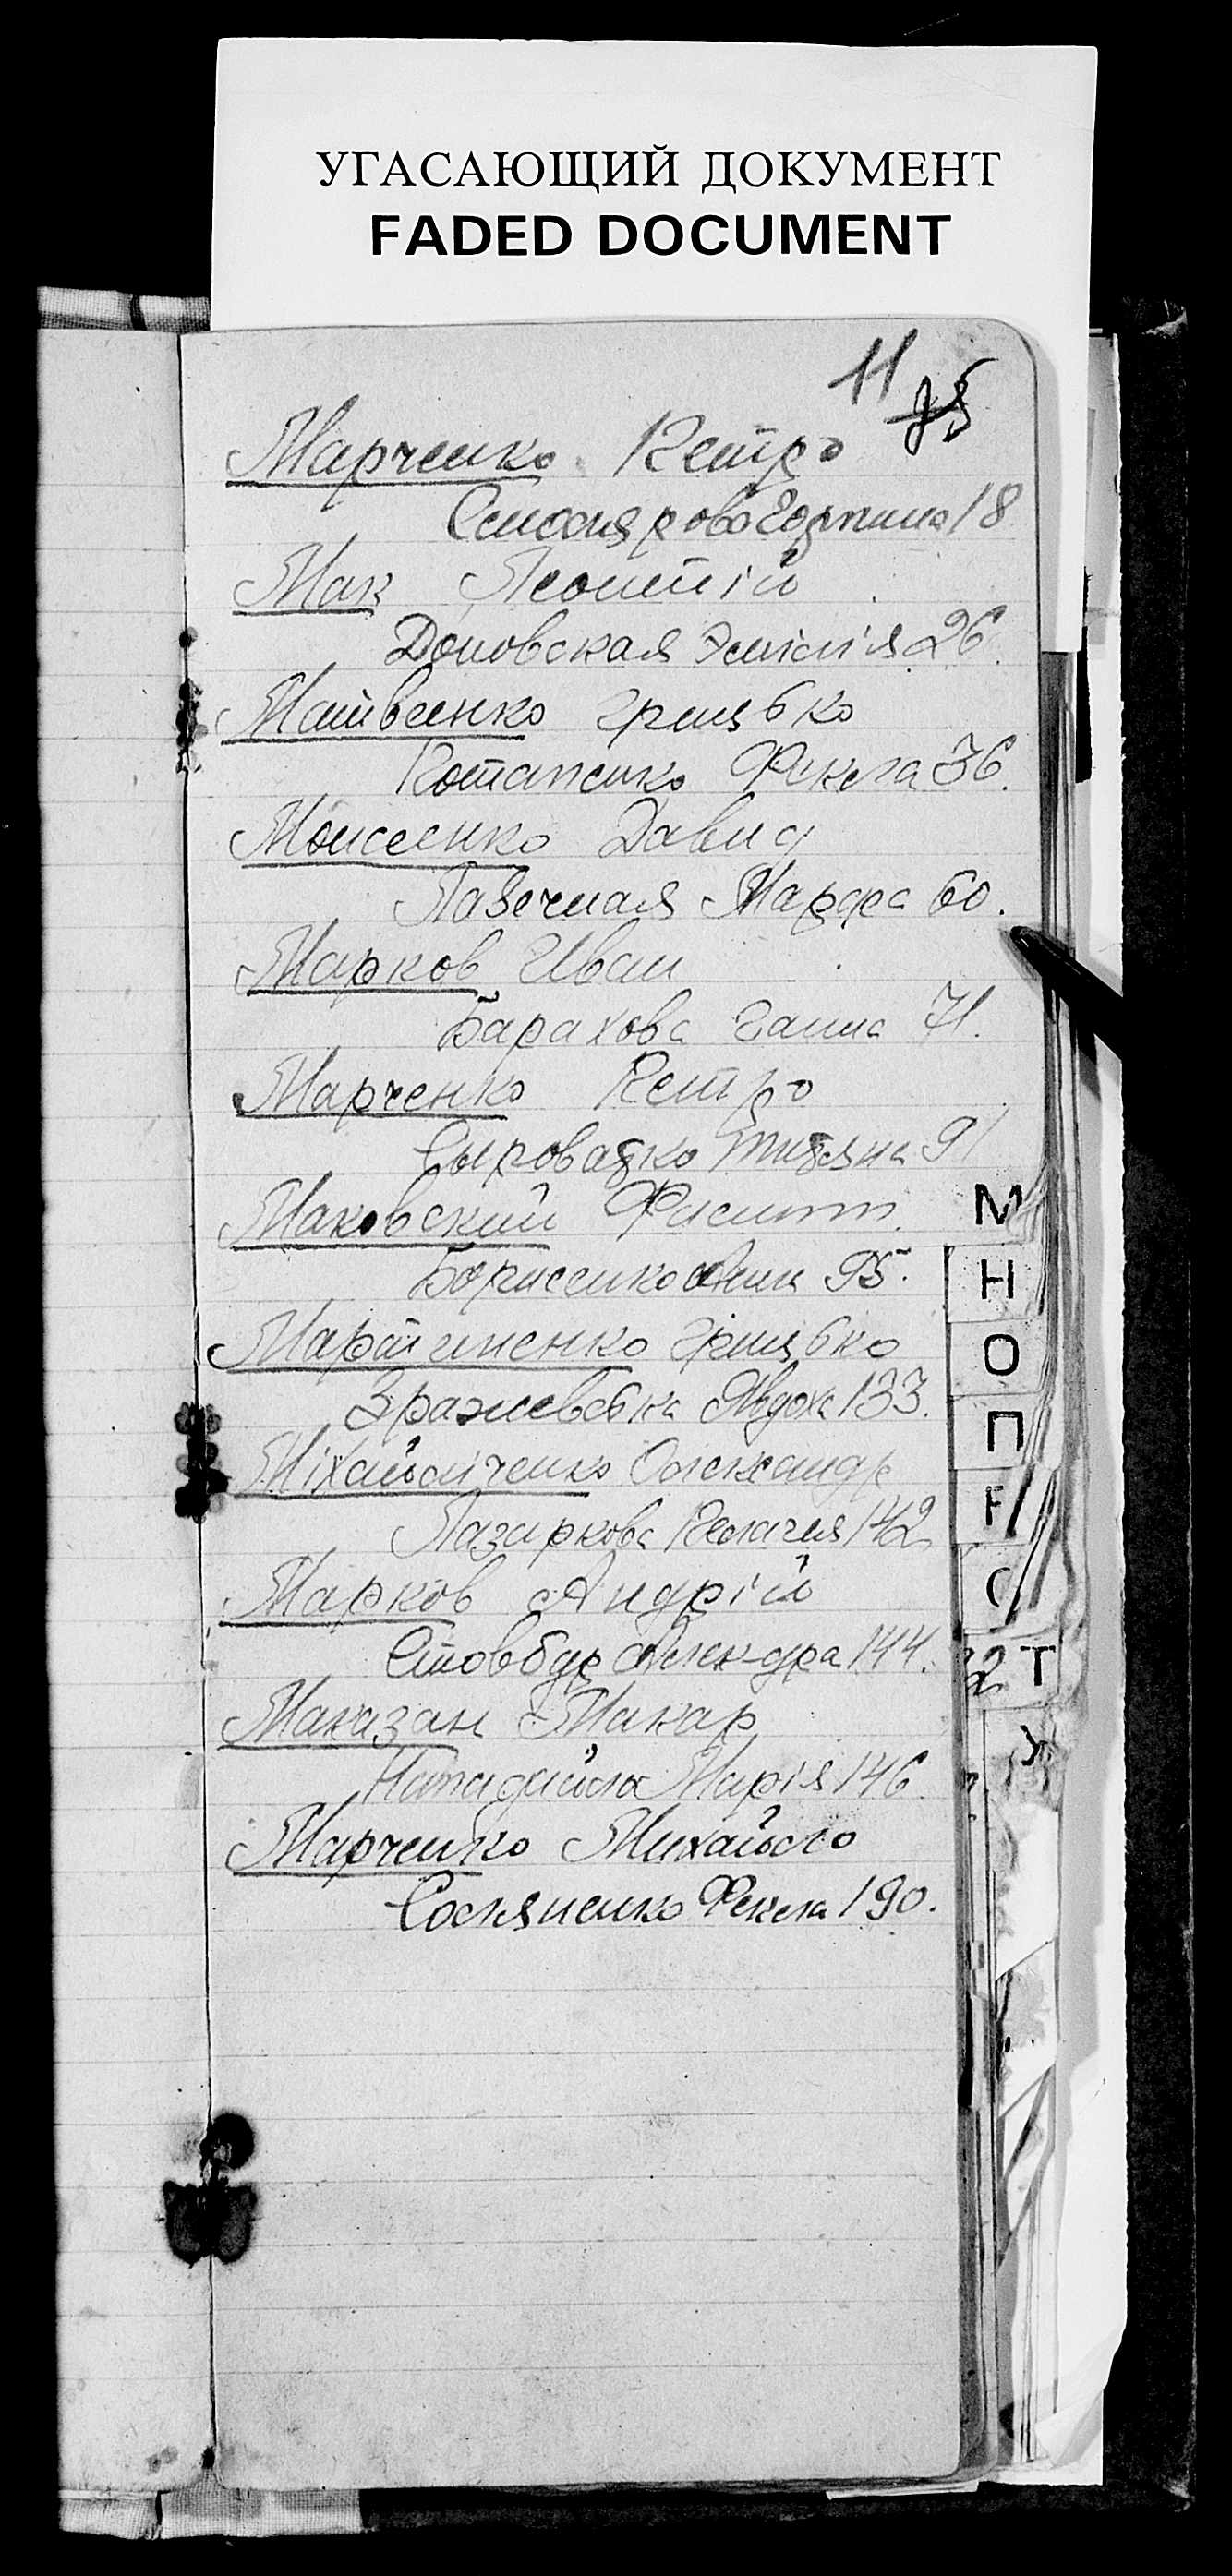 УГАСАЮЩИЙ ДОКУМЕНТ
FADED DOCUMENT
11
Марченко Петро
Столярова Горпина 18
Мак Леонтій
Доновская Эмілія 26.
Матвеенко Грицько
Потапенко Фекла 36.
Моисеенко Давид
Марфа 60.
Марков Иван
Барахова Ганна 71.
Марченко Петро
Сыроватко 91
Маковский
Борисенко Анна 95.
Мартиненко Грицько
Зражевська Явдоха 133.
Міхайличенко Олександр
Лазаркова Пелагея 142
Марков Андрій
Стовбур Алек-дра 144.
Маказан Макар
Марія 146
Марченко Михайло
Фекла 190.
М
Н
О
П
Р
С
Т
У